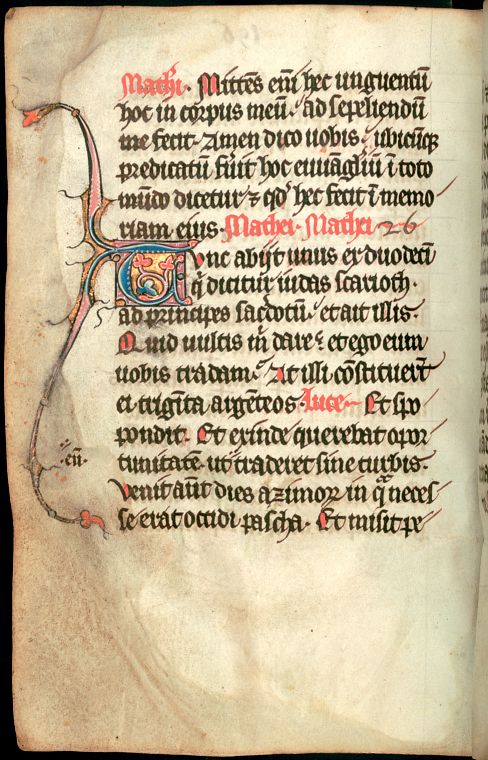 Mathi. Mittēs em̄ hec unguentū
hoc in corpus meū. ad sepeliendū
me fecit. Amen dico uobis. ubicūq;
predicatū fūit hoc euuāgliū ī toto
mūdo dicetur ⁊ qd' hec fecit ī memo
riam eius. Mathei. Mathei 26
Tunc abijt unus ex duodeci
q̄ dicitur iudas scarioth.
ad principes sac̄dotū. et ait illis.
Quid uultis m̄ dare. et ego eum
uobis tradam. At illi cōstituer̄t
ei trigīta argēteos. Luce Et spo
pondit. Et exinde querebat opor
tunitatē. ut traderet sine turbis.
eū.
Venit aūt dies azimoꝝ in qͣ neces
se erat occidi pascha. Et misit pe